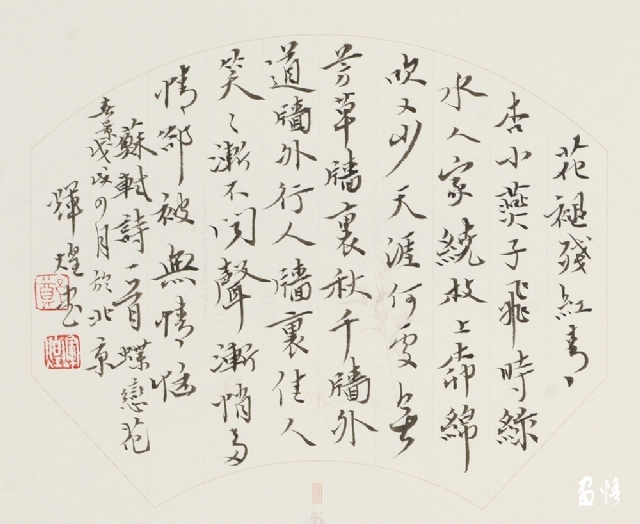 花褪殘紅青
杏小燕子飛時綠
水人家繞枝上柳綿
吹又少天涯何處無
芳草牆裏秋千牆外
道牆外行人牆裏佳人
笑〻漸不聞聲漸悄多
情卻被無情惱
蘇軾詩一首蝶戀花
春景戊戌四月於北京
輝煌書